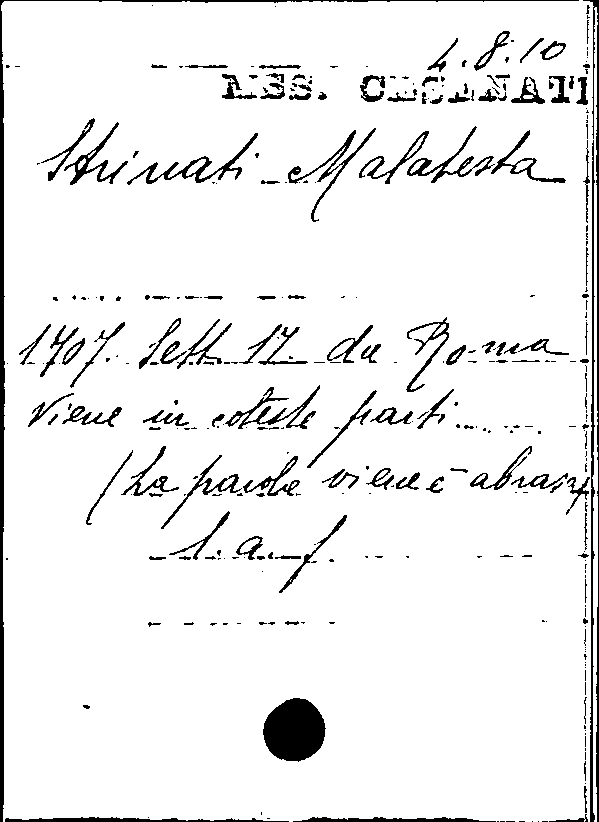 4.8.10
MSS. CESENATI
Strinati Malatesta
1707. Sett. 17. da Roma
viene in coteste parti.
(La parola viene è abrasa)
S. a. f.